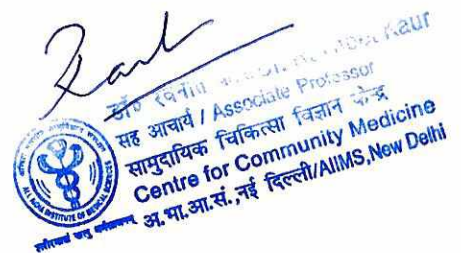 Kaur
सह आचार्य / Associate Professor
सामुदायिक चिकित्सा विज्ञान केन्द्र
Centre for Community Medicine
अ.भा.आ.सं.,नई दिल्ली/AIIMS,New Delhi
ALL INDIA INSTITUTE OF MEDICAL SCIENCES